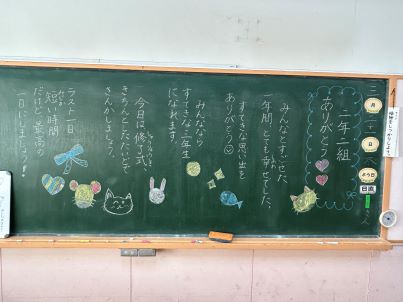 二年二組
ありがとう
みんなとすごせた
一年間、とても幸せでした。
すてきな思い出を
ありがとう
みんななら
すてきな三年生
になれます。
今日は修了式、
きちんとしたたいどで
さんかしましょう
ラスト一日。
短い時間
だけど、最高の
一日にしましょう!
月
日
よう日
日直